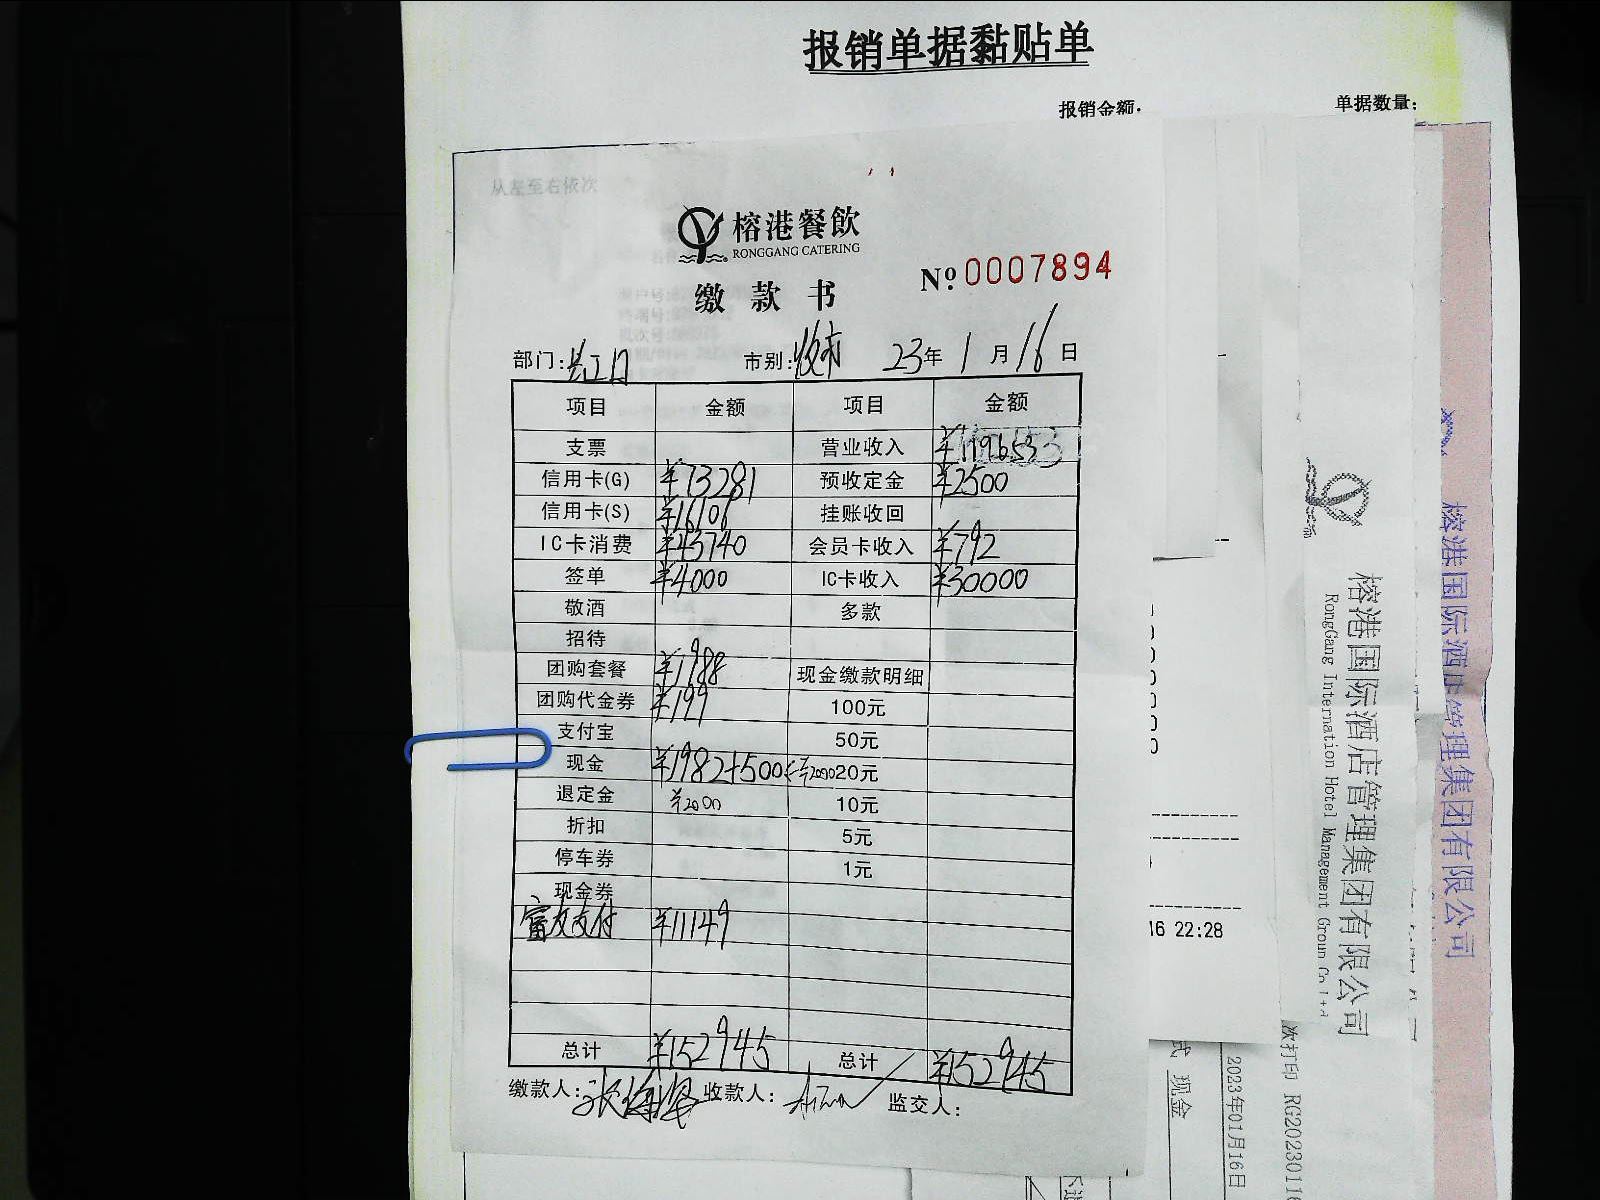 报销单据黏贴单
报销金额:
单据数量:
从左至右依次
榕港餐飲
RONGGANG CATERING
缴款书
Nº 0007894
部门: 长江口 市别: 晚市 23年 1月 16日
项目 金额 项目 金额
支票 营业收入 ¥119653
信用卡(G) ¥73281 预收定金 ¥2500
信用卡(S) ¥16106 挂账收回
IC卡消费 ¥43740 会员卡收入 ¥792
签单 ¥4000 IC卡收入 ¥30000
敬酒 多款
招待
团购套餐 ¥1988 现金缴款明细
团购代金券 ¥199 100元
支付宝 50元
现金 ¥1982+500 20元
退定金 ¥2000 10元
折扣 5元
停车券 1元
现金券
富友支付 ¥11149
总计 ¥152945 总计 ¥152945
缴款人: 收款人: 监交人:
16 22:28
榕港国际酒店管理集团有限公司
RongGang International Hotel Management Group Co Ltd
榕港国际酒店管理集团有限公司
式 现金
2023年01月16日
次打印 RG2023011